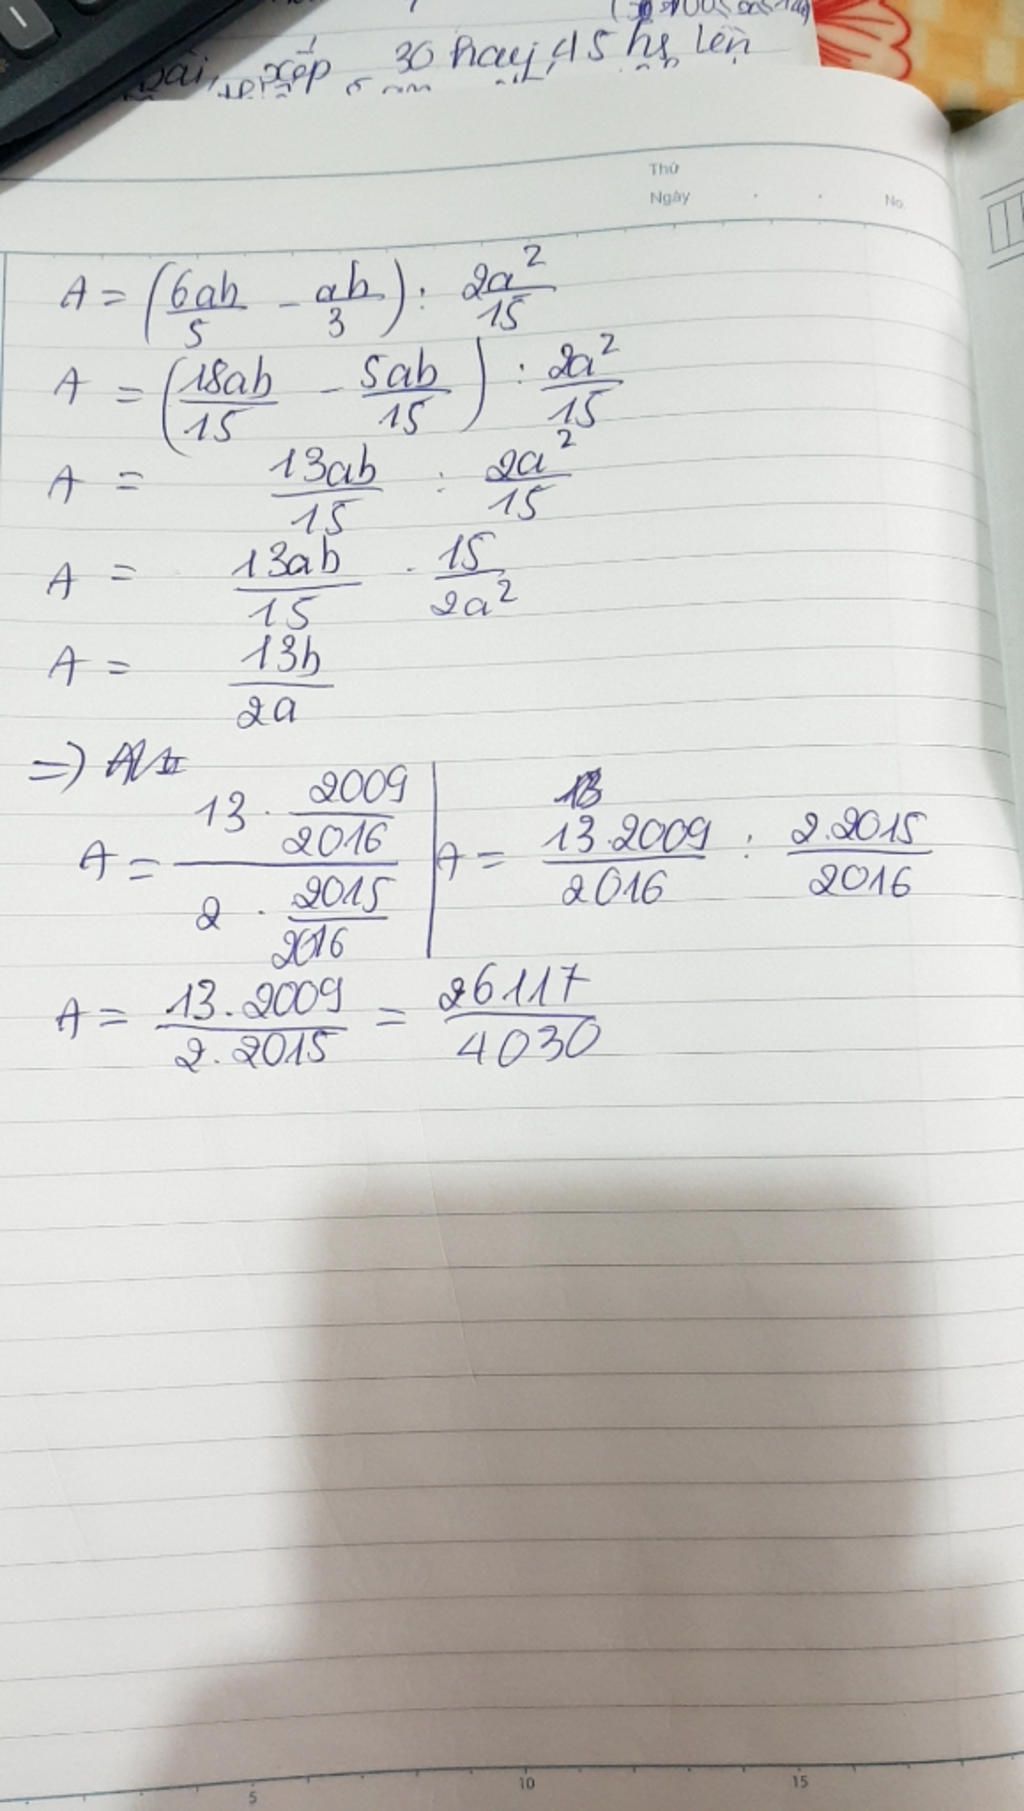 xếp 30 hay 45 hs lên
Thứ
Ngày . . No.
A = (6ab/5 - ab/3) : 2a²/15
A = (18ab/15 - 5ab/15) : 2a²/15
A = 13ab/15 : 2a²/15
A = 13ab/15 . 15/2a²
A = 13b/2a
=>
A = (13 . 2009/2016)/(2 . 2015/2016) | A = 13.2009/2016 : 2.2015/2016
A = 13.2009/2.2015 = 26117/4030
5 10 15